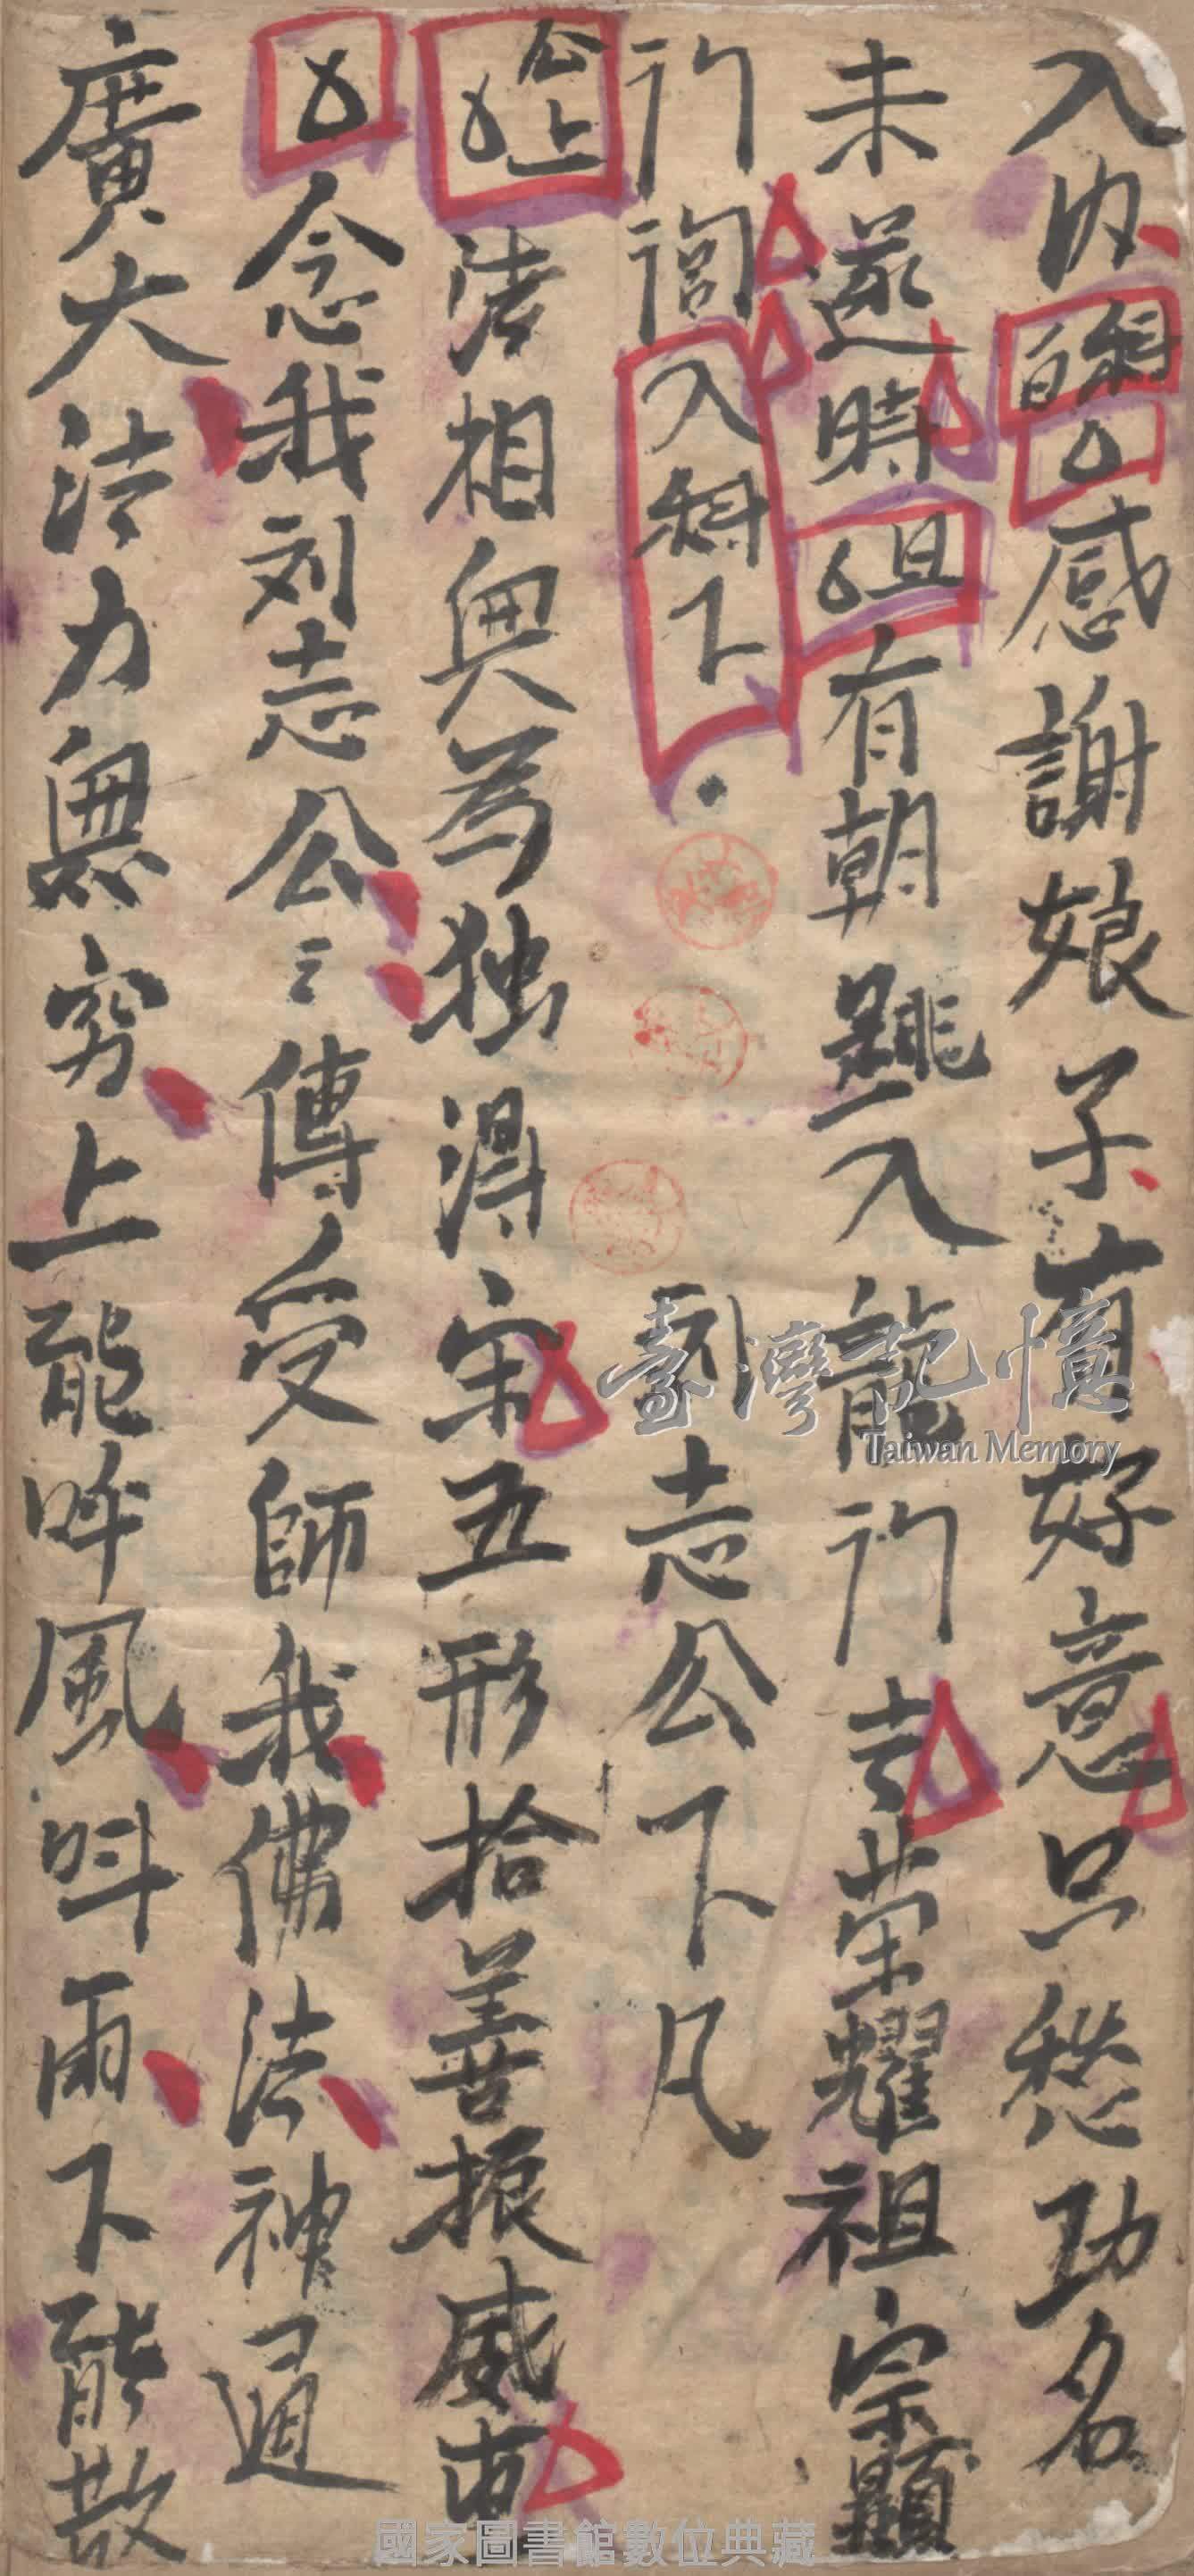 入內科白感謝娘子有好意只愁功名
未遂時旦有朝跳入龍門去荣耀祖宗顯
門閭入科下
刘志公下凡
公上法相無為独得宗五形拾善振威
念我刘志公〻傳受師我佛法神通
廣大法力無窮上能吽風吽雨下能散
臺灣記憶
Taiwan Memory
國家圖書館數位典藏